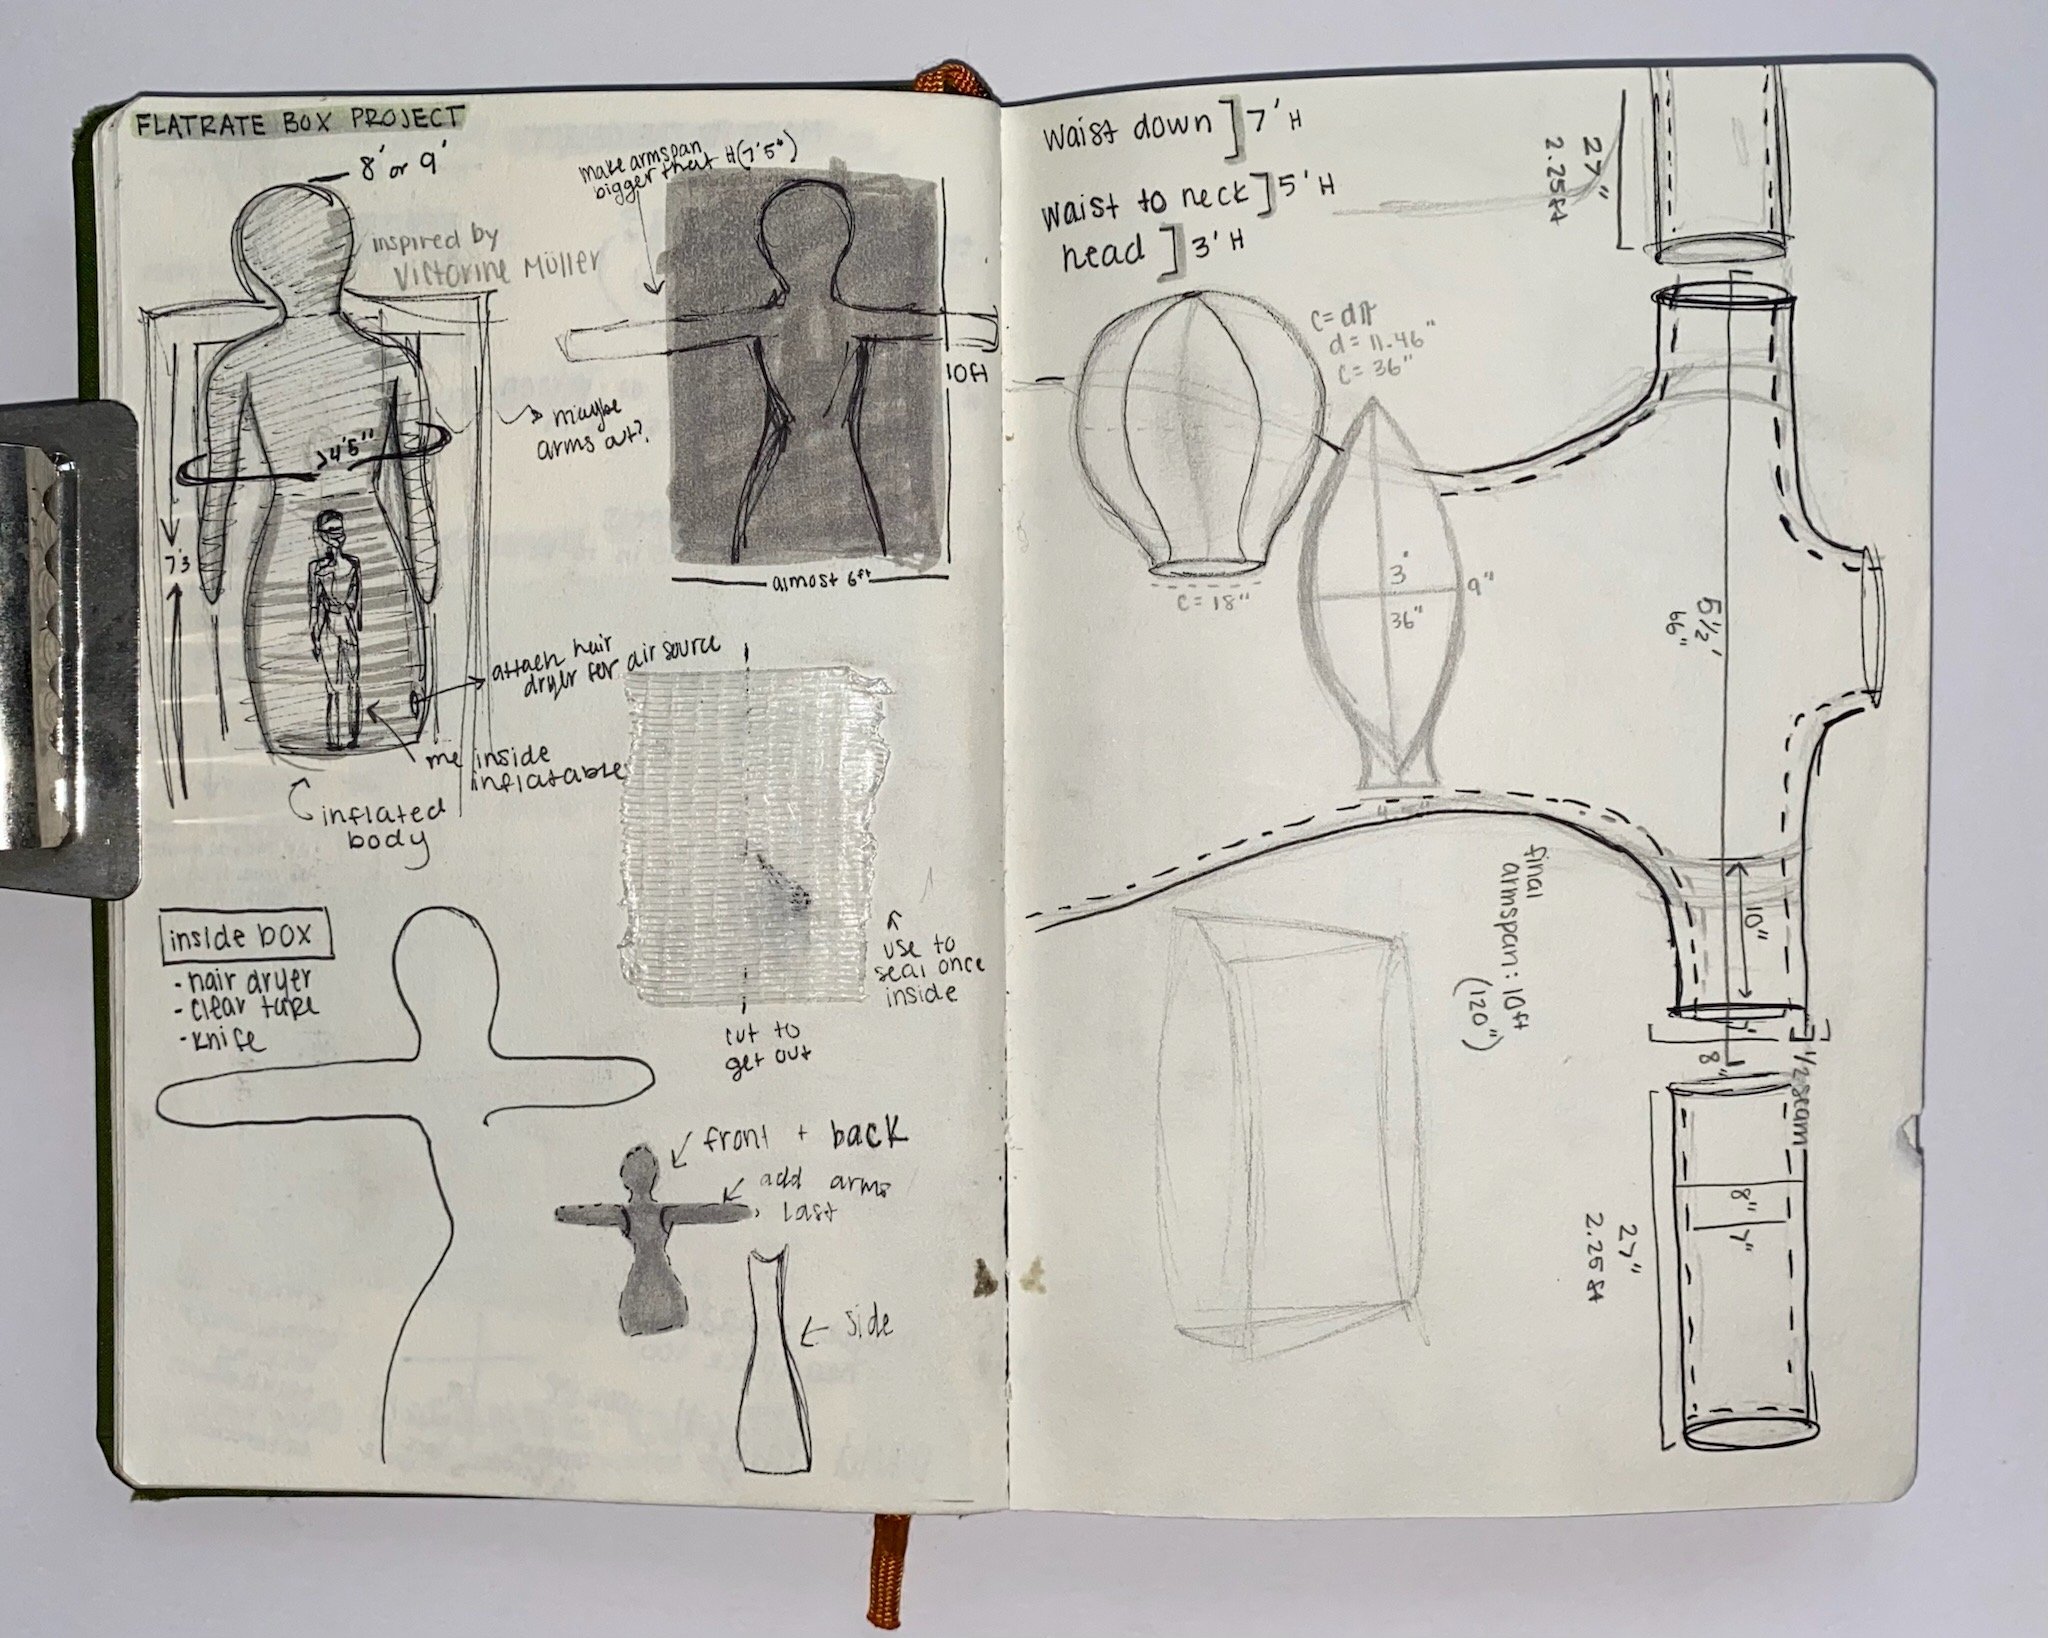 FLATRATE BOX PROJECT
8' or 9'
inspired by
Victorine Müller
make armspan
bigger that H(7'5")
10ft
maybe
arms out?
>4'5"
7'3
almost 6ft
attach hair
dryer for air source
me inside
inflatable
inflated
body
inside box
- hair dryer
- clear tape
- knife
use to
seal once
inside
cut to
get out
front + back
add arms
last
side
waist down ] 7' H
waist to neck ] 5' H
head ] 3' H
27"
2.25ft
c = dπ
d = 11.46"
c = 36"
c = 18"
3'
36"
9"
5½'
66"
final
armspan: 10ft
(120")
10"
8"
1/2 seam
8"
7"
27"
2.25 ft